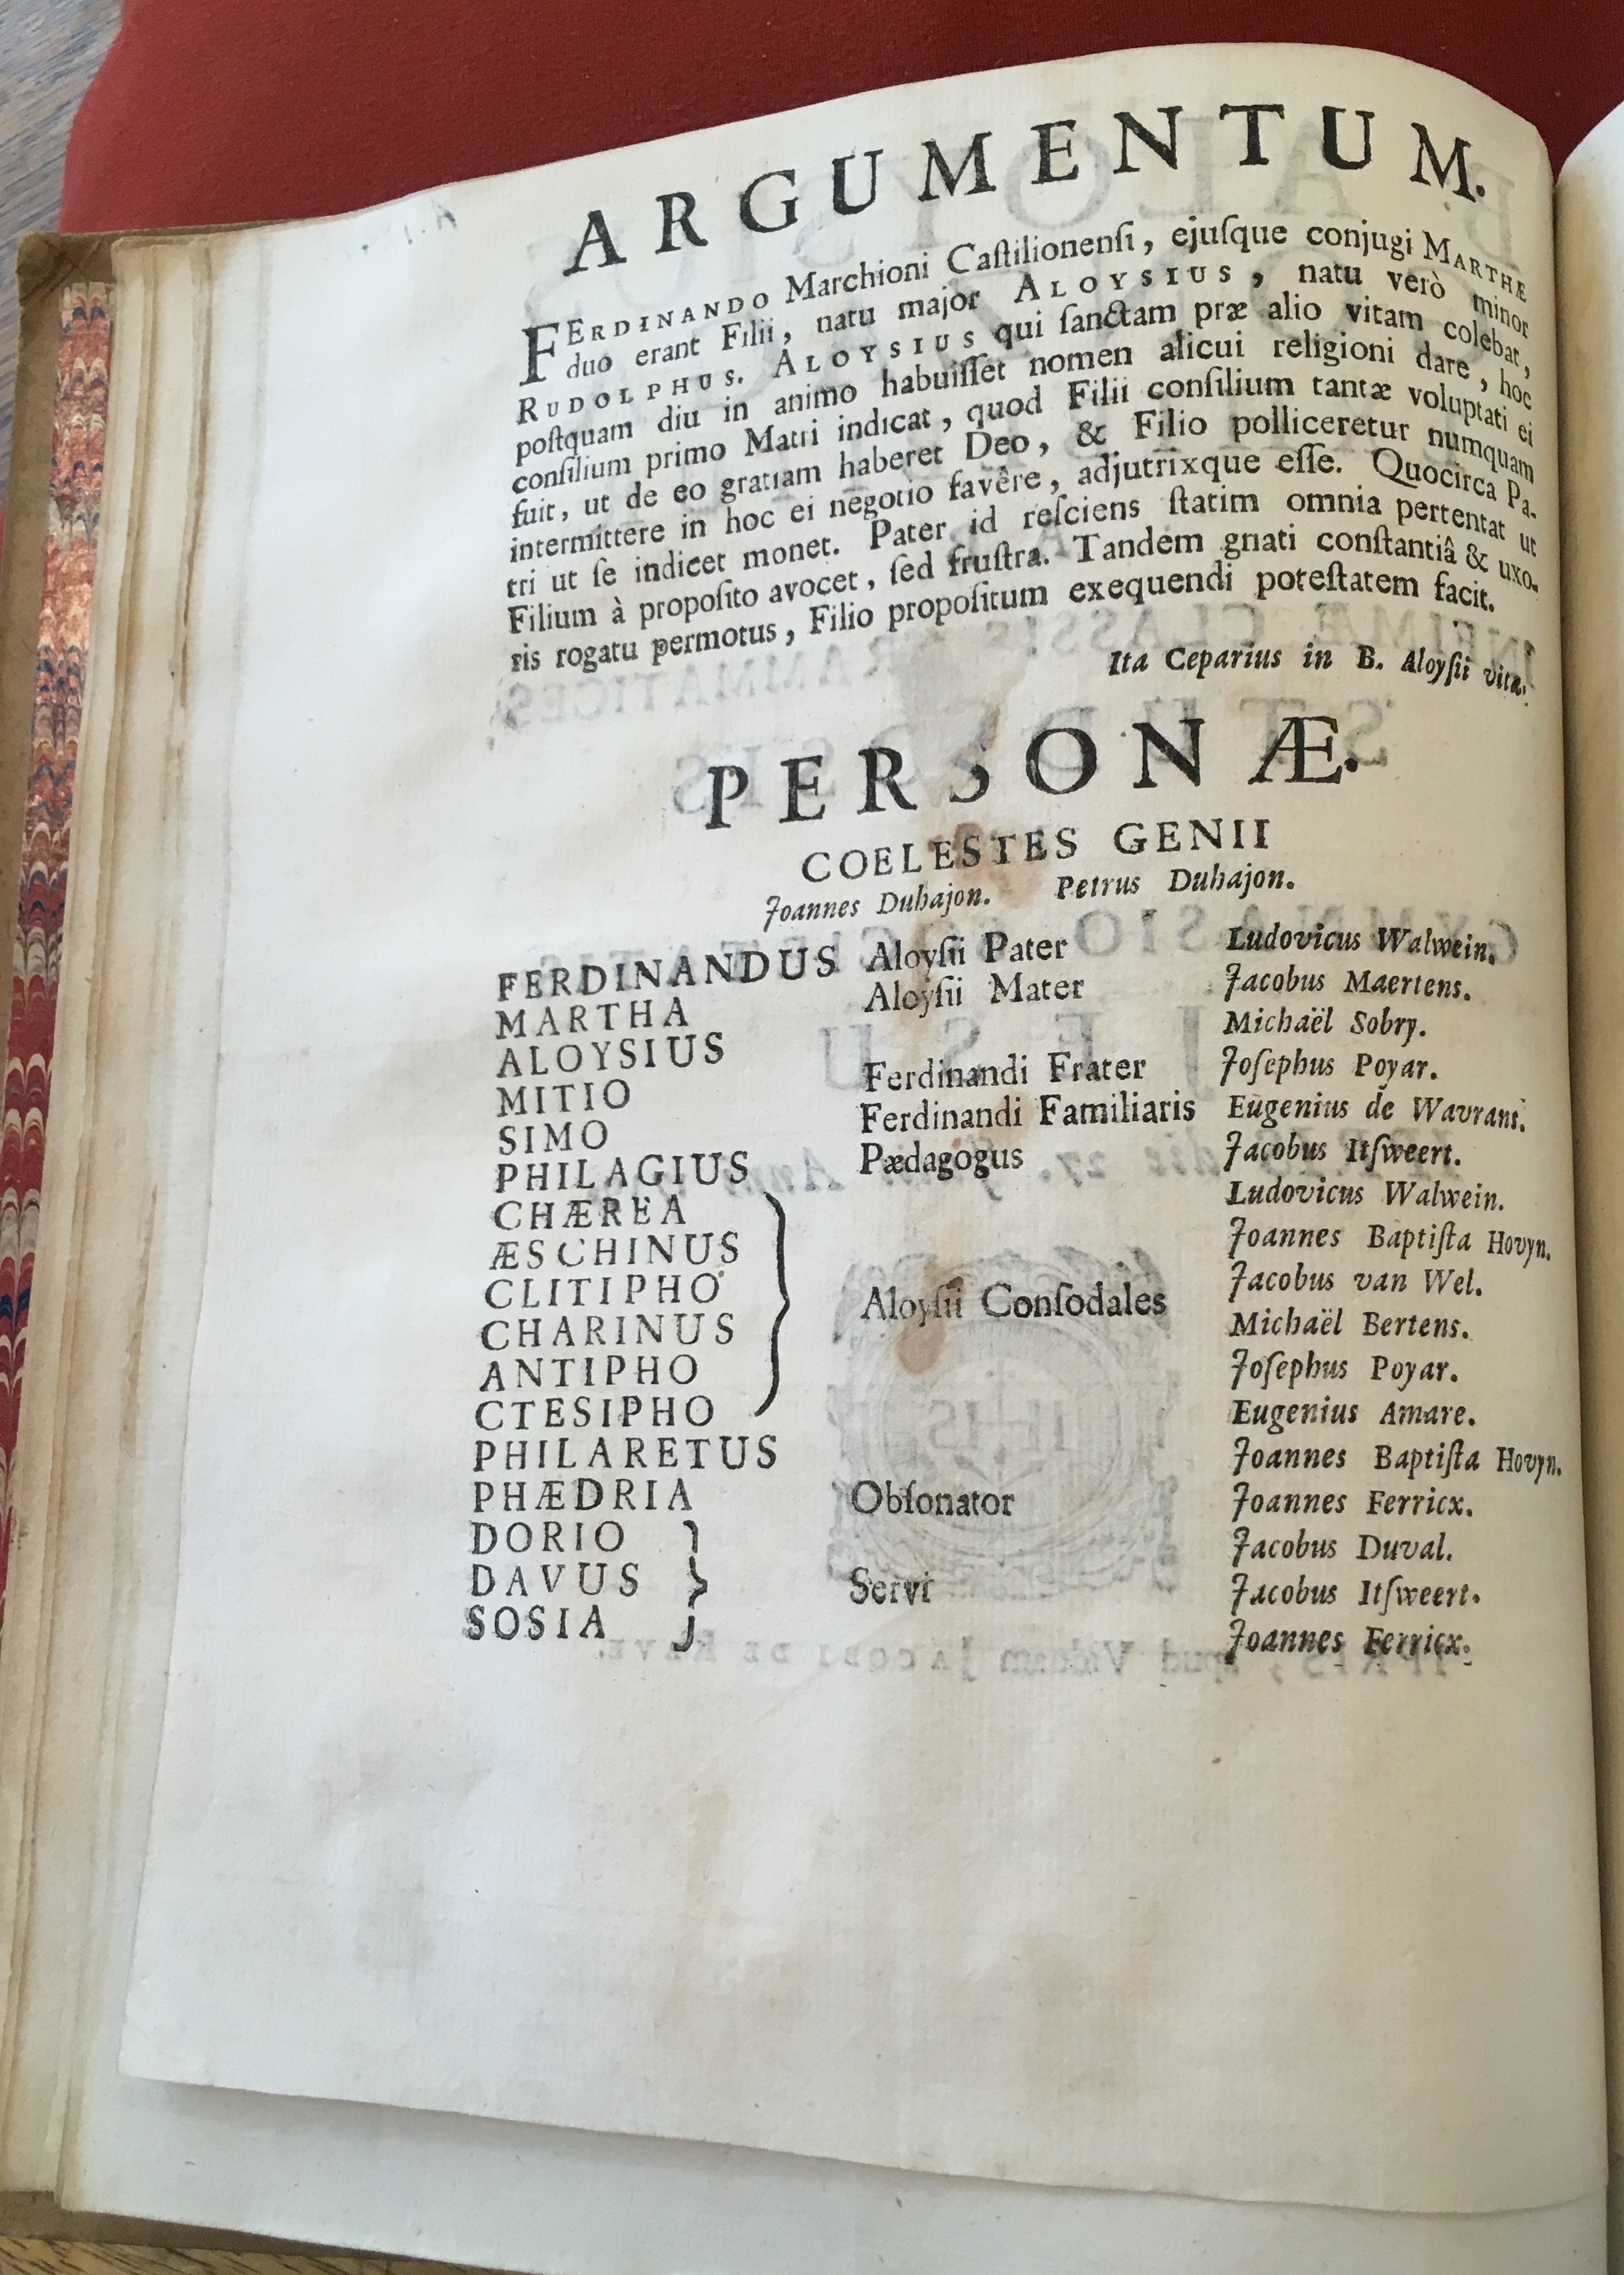 ARGUMENTUM.
FERDINANDO Marchioni Caſtilionenſi, ejuſque conjugi MARTHÆ
duo erant Filii, natu major ALOYSIUS, natu verò minor
RUDOLPHUS. ALOYSIUS qui ſanctam præ alio vitam colebat,
poſtquam diu in animo habuiſſet nomen alicui religioni dare, hoc
conſilium primo Matri indicat, quod Filii conſilium tantæ voluptati ei
fuit, ut de eo gratiam haberet Deo, & Filio polliceretur numquam
intermittere in hoc ei negotio favêre, adjutrixque eſſe. Quocirca Pa-
tri ut ſe indicet monet. Pater id reſciens ſtatim omnia pertentat ut
Filium à propoſito avocet, ſed fruſtra. Tandem gnati conſtantiâ & uxo-
ris rogatu permotus, Filio propoſitum exequendi poteſtatem facit.
Ita Ceparius in B. Aloyſii vita.
PERSONÆ.
COELESTES GENII
Joannes Duhajon. Petrus Duhajon.
FERDINANDUS Aloyſii Pater Ludovicus Walwein.
MARTHA Aloyſii Mater Jacobus Maertens.
ALOYSIUS Michaël Sobry.
MITIO Ferdinandi Frater Joſephus Poyar.
SIMO Ferdinandi Familiaris Eugenius de Wavrans.
PHILAGIUS Pædagogus Jacobus Itſweert.
CHÆREA Ludovicus Walwein.
ÆSCHINUS Joannes Baptiſta Hovyn.
CLITIPHO Aloyſii Conſodales Jacobus van Wel.
CHARINUS Michaël Bertens.
ANTIPHO Joſephus Poyar.
CTESIPHO Eugenius Amare.
PHILARETUS Joannes Baptiſta Hovyn.
PHÆDRIA Obſonator Joannes Ferricx.
DORIO Jacobus Duval.
DAVUS Servi Jacobus Itſweert.
SOSIA Joannes Ferricx.